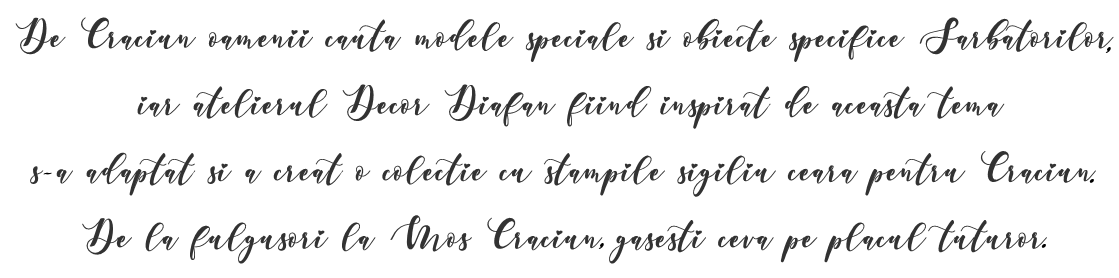 De Craciun oamenii cauta modele speciale si obiecte specifice Sarbatorilor,
iar atelierul Decor Diafan fiind inspirat de aceasta tema
s-a adaptat si a creat o colectie cu stampile sigiliu ceara pentru Craciun.
De la fulgusori la Mos Craciun, gasesti ceva pe placul tuturor.